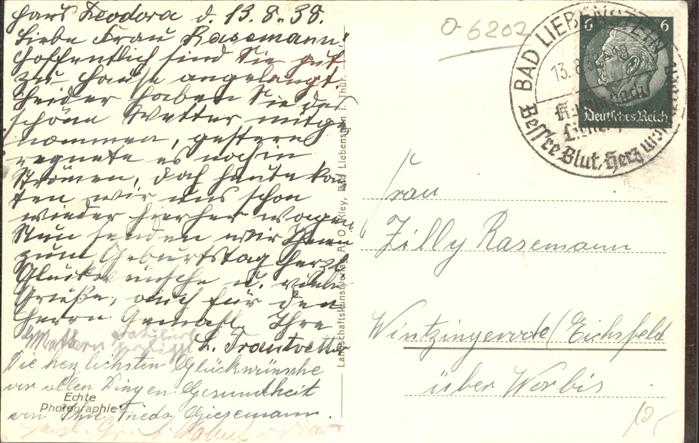 Haus Teodora d. 13.8.38.
Liebe Frau Rasemann!
Hoffentlich sind Sie gut
zu Hause angelangt
Leider haben Sie das
schöne Wetter mitge-
nommen, gestern
regnete es noch in
Strömen, doch heute konn-
ten wir uns schon
wieder hierher wagen
Nun senden wir Ihnen
zum Geburtstag herzl.
Glückwünsche u. viele
Grüße, auch für den
Herrn Gemahl. Ihre
L. Trautvetter
Die herzlichsten Glückwünsche
vor allen Dingen Gesundheit
von Ihrer Frieda Giesemann.
Echte
Photographie
Bad Liebenstein i. Thür.
O-6202
BAD LIEBENSTEIN
13.8.
Bess're Blut, Herz
6 6
Deutsches Reich
Frau
Zilly Rasemann
Wintzingerode/Eichsfeld
über Worbis
10,-